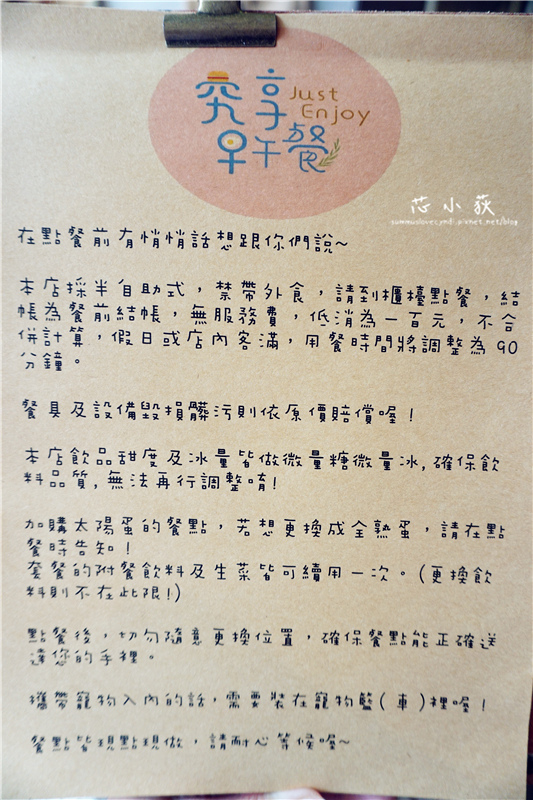 奕享 Just Enjoy
早午餐
芯小荻
yummuslovecyndi.pixnet.net/blog
在點餐前有悄悄話想跟你們說~
本店採半自助式，禁帶外食，請到櫃檯點餐，結
帳為餐前結帳，無服務費，低消為一百元，不合
併計算，假日或店內客滿，用餐時間將調整為90
分鐘。
餐具及設備毀損髒污則依原價賠償喔！
本店飲品甜度及冰量皆做微量糖微量冰,確保飲
料品質,無法再行調整唷!
加購太陽蛋的餐點，若想更換成全熟蛋，請在點
餐時告知！
套餐的附餐飲料及生菜皆可續用一次。(更換飲
料則不在此限!)
點餐後，切勿隨意更換位置，確保餐點能正確送
達您的手裡。
攜帶寵物入內的話，需要裝在寵物籃(車)裡喔！
餐點皆現點現做，請耐心等候喔~